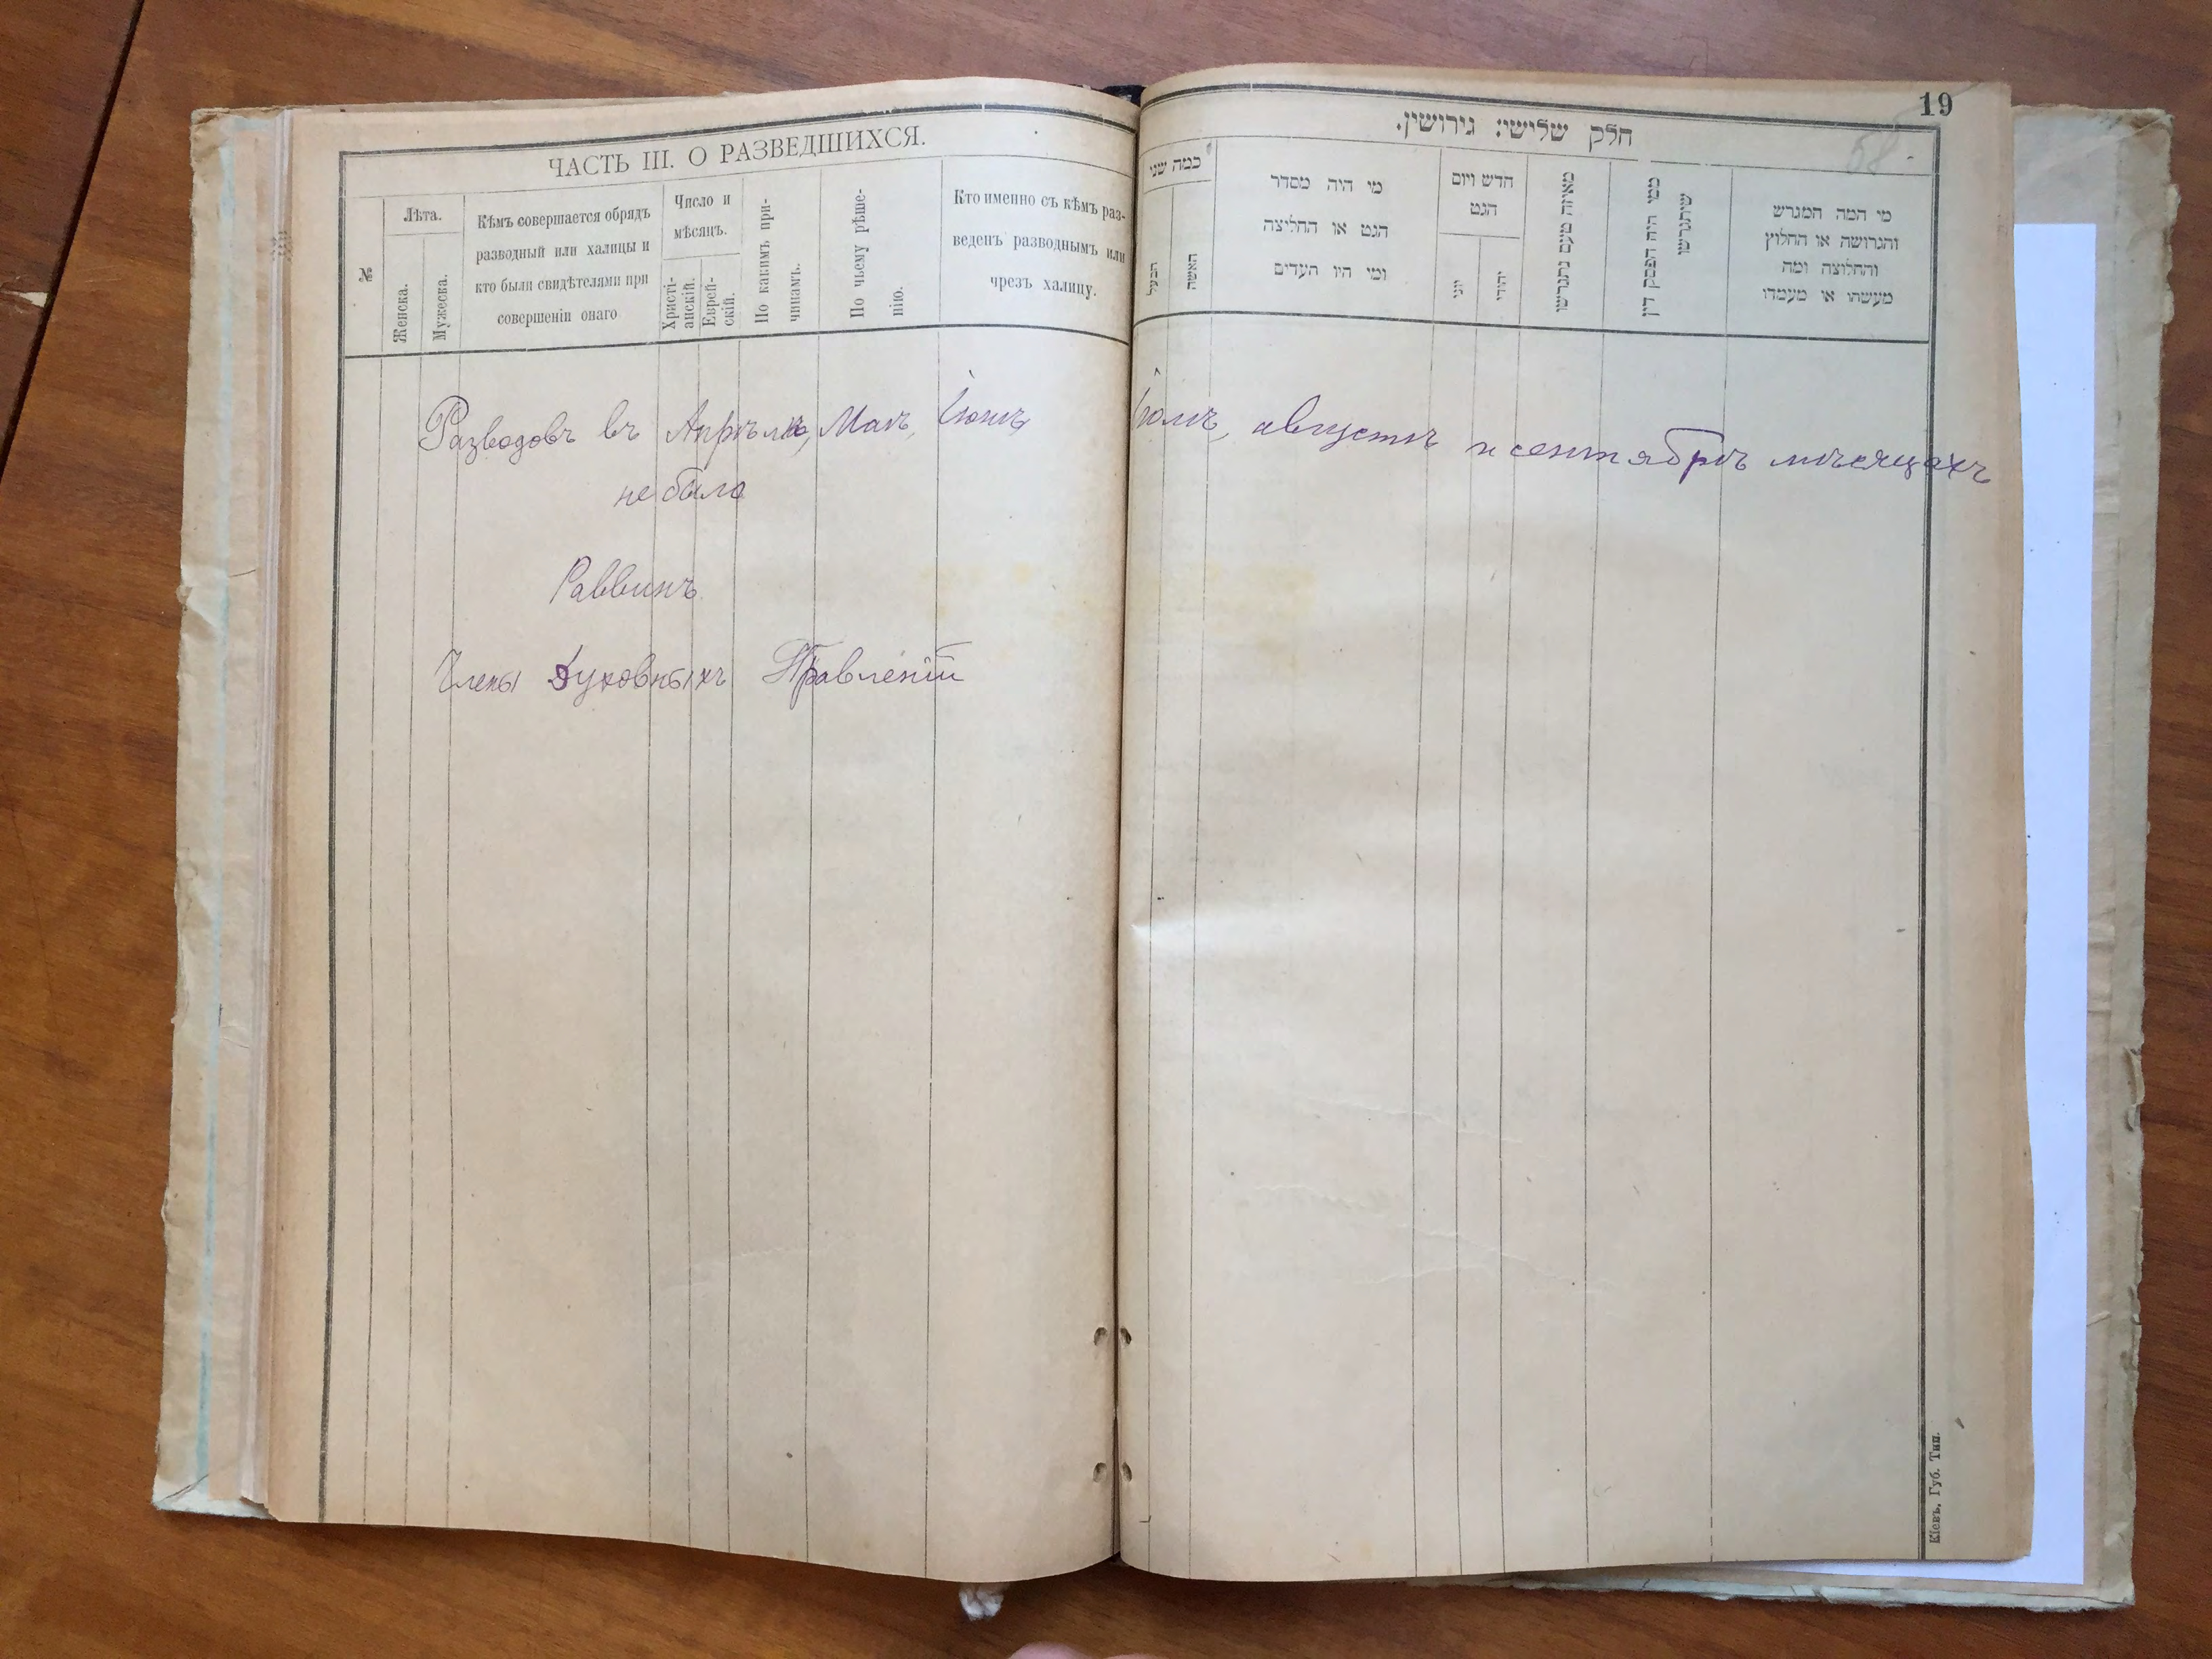 ЧАСТЬ III. О РАЗВЕДШИХСЯ.
№
Лѣта.
Женска.
Мужеска.
Кѣмъ совершается обрядъ
разводный или халицы и
кто были свидѣтелями при
совершеніи онаго
Число и
мѣсяцъ.
Христі-
анскій.
Еврей-
скій.
По какимъ при-
чинамъ.
По чьему рѣше-
нію.
Кто именно съ кѣмъ раз-
веденъ разводнымъ или
чрезъ халицу.
Разводовъ въ Апрѣлѣ, Маѣ, Іюнѣ,
не было
Раввинъ
Члены Духовныхъ Правленій
19
58
חלק שלישי: גירושין.
כמה שני
הבעל
האשה
מי היה מסדר
הגט או החליצה
ומי היו העדים
חדש ויום
הגט
יוני
יהודי
מאיזה טעם נתגרשו
ממי היה הפסק דין
שיתגרשו
מי המה המגרש
והגרושה או החלוץ
והחלוצה ומה
מעשהו או מעמדו
Іюлѣ, августѣ и сентябрѣ мѣсяцахъ
Кіевъ, Губ. Тип.